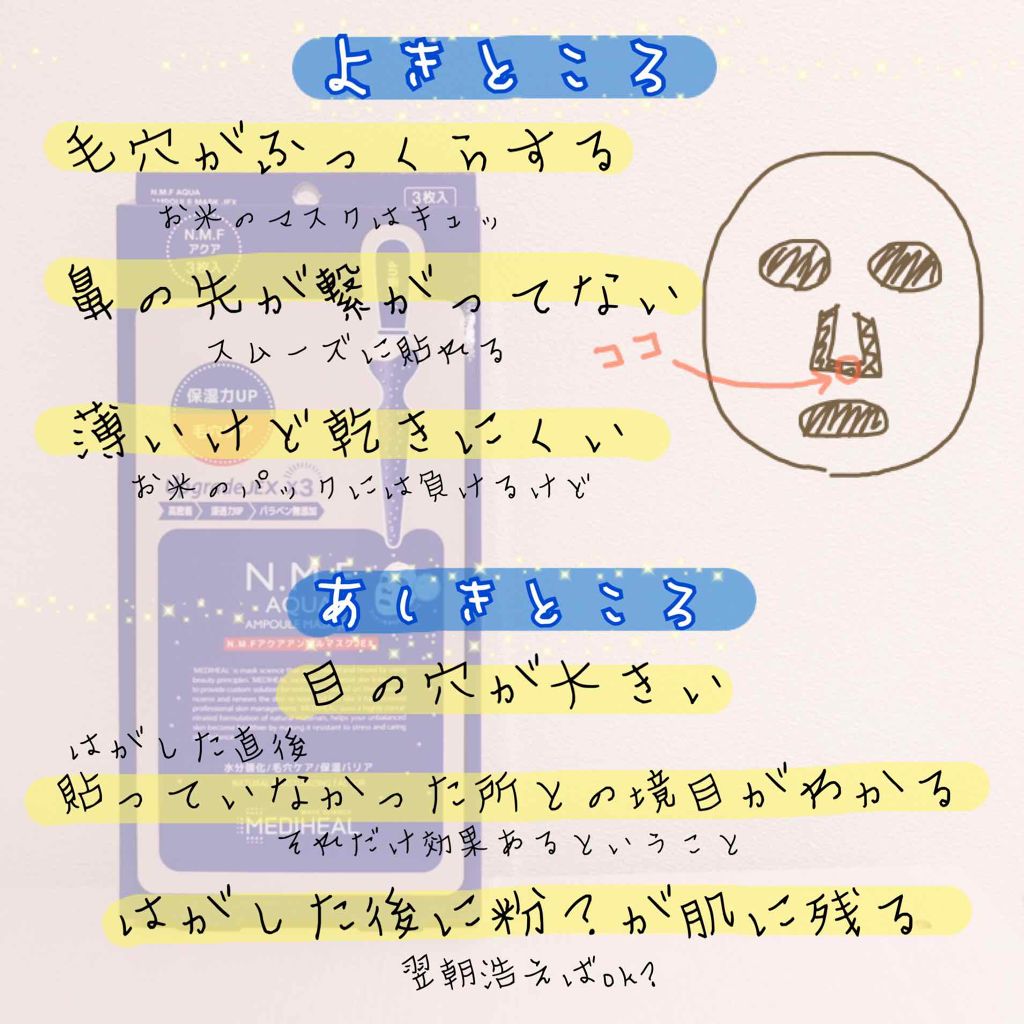 よきところ
毛穴がふっくらする
お米のマスクはキュッ
鼻の先が繋がってない
スムーズに貼れる
ココ
薄いけど乾きにくい
お米のパックには負けるけど
あしきところ
目の穴が大きい
はがした直後
貼っていなかった所との境目がわかる
それだけ効果あるということ
はがした後に粉?が肌に残る
翌朝浩えばOK?
N.M.F AQUA
AMPOULE MASK JEX
3枚入
N.M.F
アクア
3枚入
保湿力UP
毛穴
UpgradeJEX x3
高密着 浸透力UP パラベン無添加
N.M.F
AQUA
AMPOULE MA
N.M.Fアクアアンプルマスク JEX
水分強化/毛穴ケア/保湿バリア
MEDIHEAL